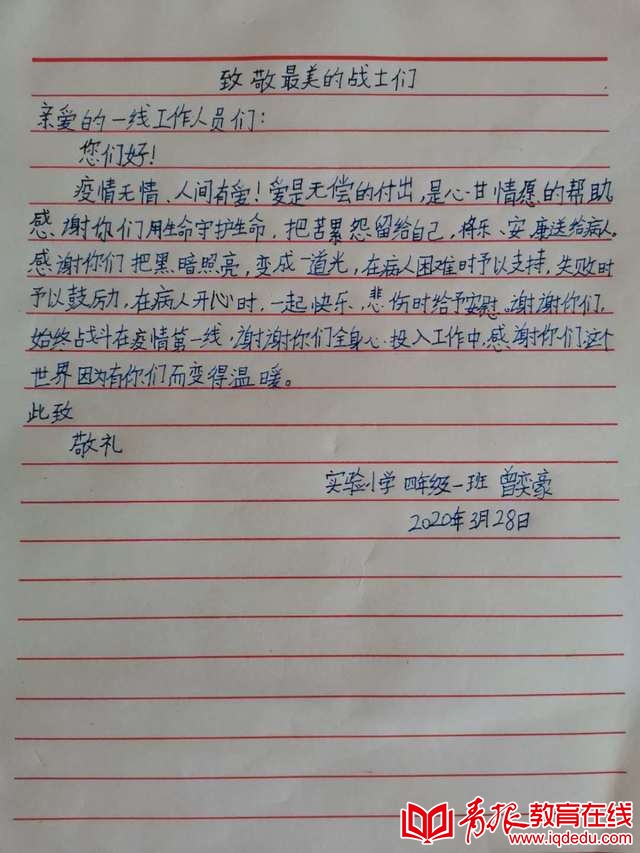 致敬最美的战士们
亲爱的一线工作人员们：
您们好！
疫情无情、人间有爱！爱是无偿的付出，是心甘情愿的帮助
感谢你们用生命守护生命，把苦累怨留给自己，将乐、安、康送给病人。
感谢你们把黑暗照亮，变成一道光，在病人困难时予以支持，失败时
予以鼓励，在病人开心时，一起快乐、悲伤时给予安慰。谢谢你们，
始终战斗在疫情第一线，谢谢你们全身心投入工作中，感谢你们这个
世界因为有你们而变得温暖。
此致
敬礼
实验小学四年级一班 曾奕豪
2020年3月28日
青报教育在线
www.iqdedu.com